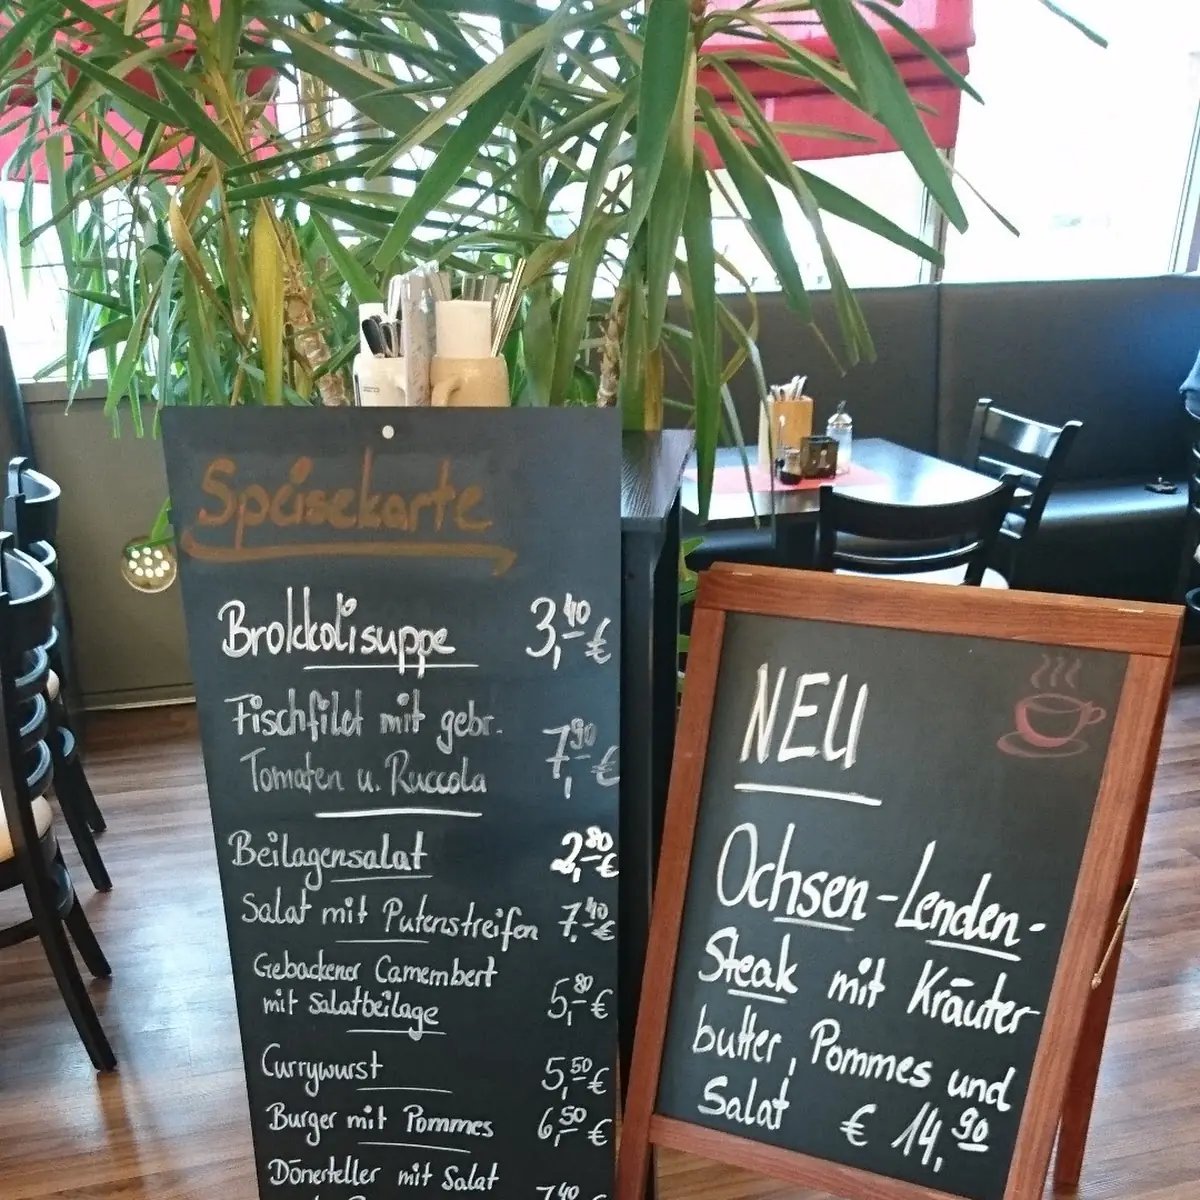 Speisekarte
Brokkolisuppe 3,40 €
Fischfilet mit gebr.
Tomaten u. Ruccola 7,90 €
Beilagensalat 2,80 €
Salat mit Putenstreifen 7,40 €
Gebackener Camembert
mit Salatbeilage 5,80 €
Currywurst 5,50 €
Burger mit Pommes 6,50 €
Dönerteller mit Salat
7,40 €
NEU
Ochsen-Lenden-
Steak mit Kräuter
butter, Pommes und
Salat € 14,90